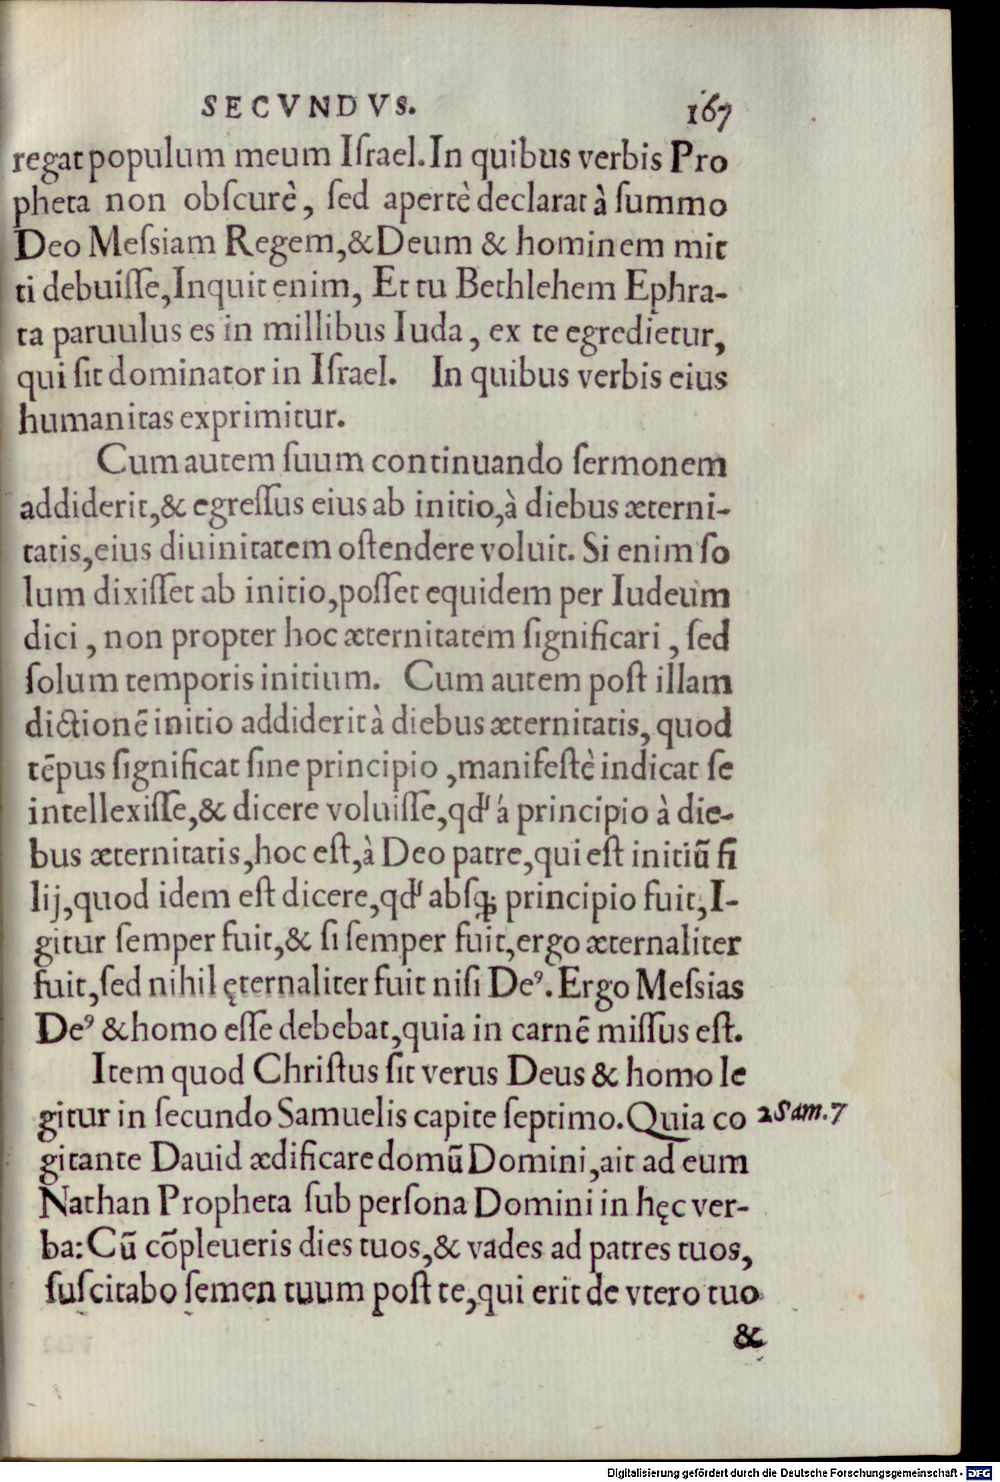 SECVNDVS. 167
regat populum meum Iſrael. In quibus verbis Pro
pheta non obſcurè, ſed apertè declarat à ſummo
Deo Meſsiam Regem, & Deum & hominem mit
ti debuiſſe, Inquit enim, Et tu Bethlehem Ephra-
ta paruulus es in millibus Iuda, ex te egredietur,
qui ſit dominator in Iſrael. In quibus verbis eius
humanitas exprimitur.
Cum autem ſuum continuando ſermonem
addiderit, & egreſſus eius ab initio, à diebus æterni-
tatis, eius diuinitatem oſtendere voluit. Si enim ſo
lum dixiſſet ab initio, poſſet equidem per Iudeum
dici, non propter hoc æternitatem ſignificari, ſed
ſolum temporis initium. Cum autem poſt illam
dictionē initio addiderit à diebus æternitatis, quod
tēpus ſignificat ſine principio, manifeſtè indicat ſe
intellexiſſe, & dicere voluiſſe, qđ á principio à die-
bus æternitatis, hoc eſt, à Deo patre, qui eſt initiū fi
lij, quod idem eſt dicere, qđ abſq; principio fuit, I-
gitur ſemper fuit, & ſi ſemper fuit, ergo æternaliter
fuit, ſed nihil ęternaliter fuit niſi Deꝰ. Ergo Meſsias
Deꝰ & homo eſſe debebat, quia in carnē miſſus eſt.
Item quod Chriſtus ſit verus Deus & homo le
gitur in ſecundo Samuelis capite ſeptimo. Quia co 2 Sam. 7
gitante Dauid ædificare domū Domini, ait ad eum
Nathan Propheta ſub perſona Domini in hęc ver-
ba: Cū cōpleueris dies tuos, & vades ad patres tuos,
ſuſcitabo ſemen tuum poſt te, qui erit de vtero tuo
&
Digitalisierung gefördert durch die Deutsche Forschungsgemeinschaft - DFG